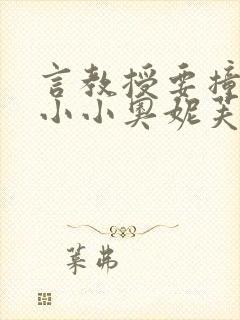 言教授要撞
小小奥妮芙
叶弗